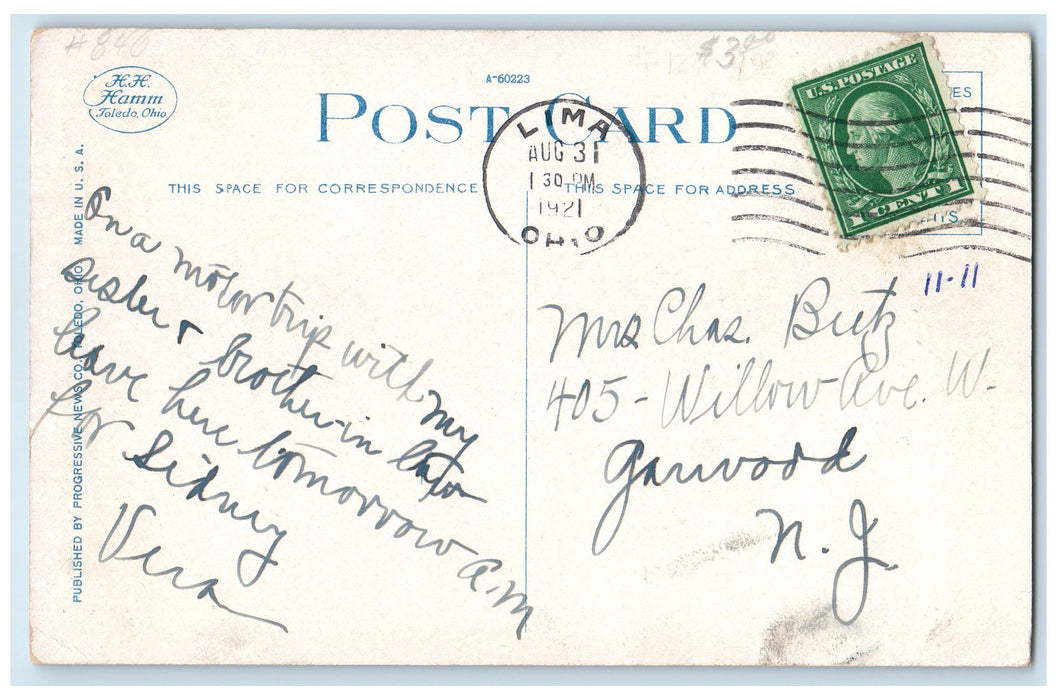 # 846
$3.00
H.H.
Hamm
Toledo, Ohio
A-60223
POST CARD
THIS SPACE FOR CORRESPONDENCE
THIS SPACE FOR ADDRESS
LIMA
AUG 31
1 30 PM
1921
OHIO
U.S. POSTAGE
1 CENT 1
11-11
PUBLISHED BY PROGRESSIVE NEWS CO., TOLEDO, OHIO. MADE IN U. S. A.
On a motor trip with my
sister & brother-in law
leave here tomorrow a.m
for Sidney
Vera
Mrs Chas. Butz
405 - Willow Ave. W.
Garwood
N. J.